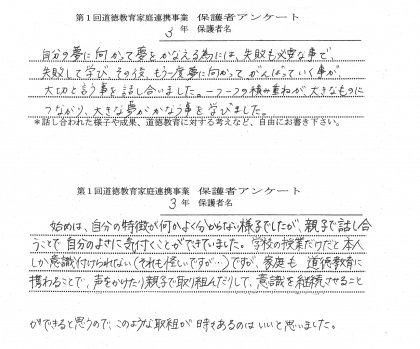 第1回道徳教育家庭連携事業 保護者アンケート
3年 保護者名
自分の夢に向かって夢をかなえる為には、失敗も必要な事で、
失敗して学び、その後、もう一度夢に向かってがんばっていく事が、
大切と言う事を話し合いました。一つ一つの積み重ねが、大きなものに
つながり、大きな夢がかなう事を学びました。
*話し合われた様子や成果、道徳教育に対する考えなど、自由にお書き下さい。
第1回道徳教育家庭連携事業 保護者アンケート
3年 保護者名
始めは、自分の特徴が何かよく分からない様子でしたが、親子で話し合
うことで自分のよさに気付くことができていました。学校の授業だけだと本人
しか意識付けられない(それも怪しいですが…)ですが、家庭も道徳教育に
携わることで、声をかけたり親子で取り組んだりして、意識を継続させること
ができると思うので、このような取組が時々あるのはいいと思いました。